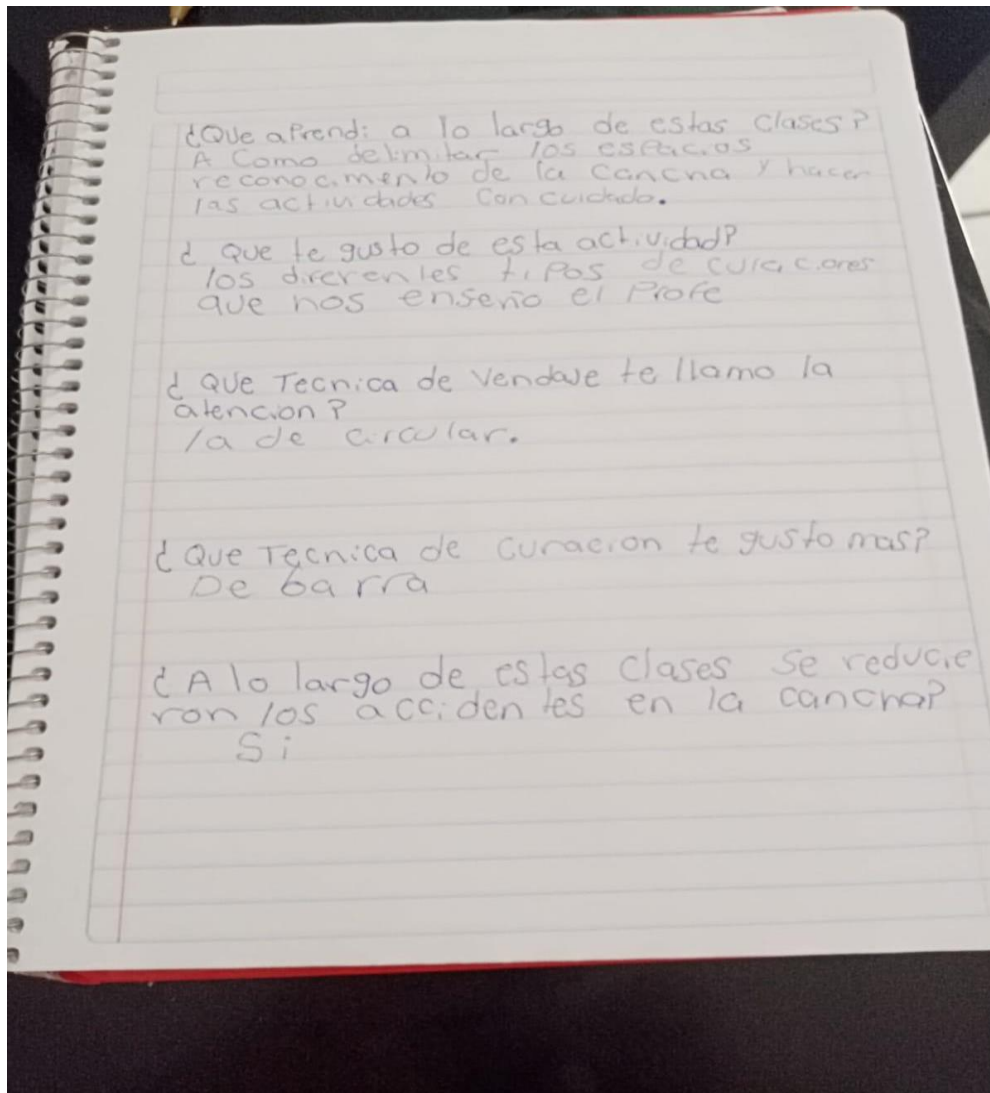 ¿Que aprendi a lo largo de estas clases?
A Como delimitar los espacios
reconocimento de la cancha y hacer
las actividades con cuidado.
¿ Que te gusto de esta actividad?
los diferentes tipos de curaciones
que nos enseño el Profe
¿ Que Tecnica de vendaje te llamo la
atencion?
la de circular.
¿ Que Tecnica de curacion te gusto mas?
De barra
¿ A lo largo de estas clases se reducie
ron los accidentes en la cancha?
Si